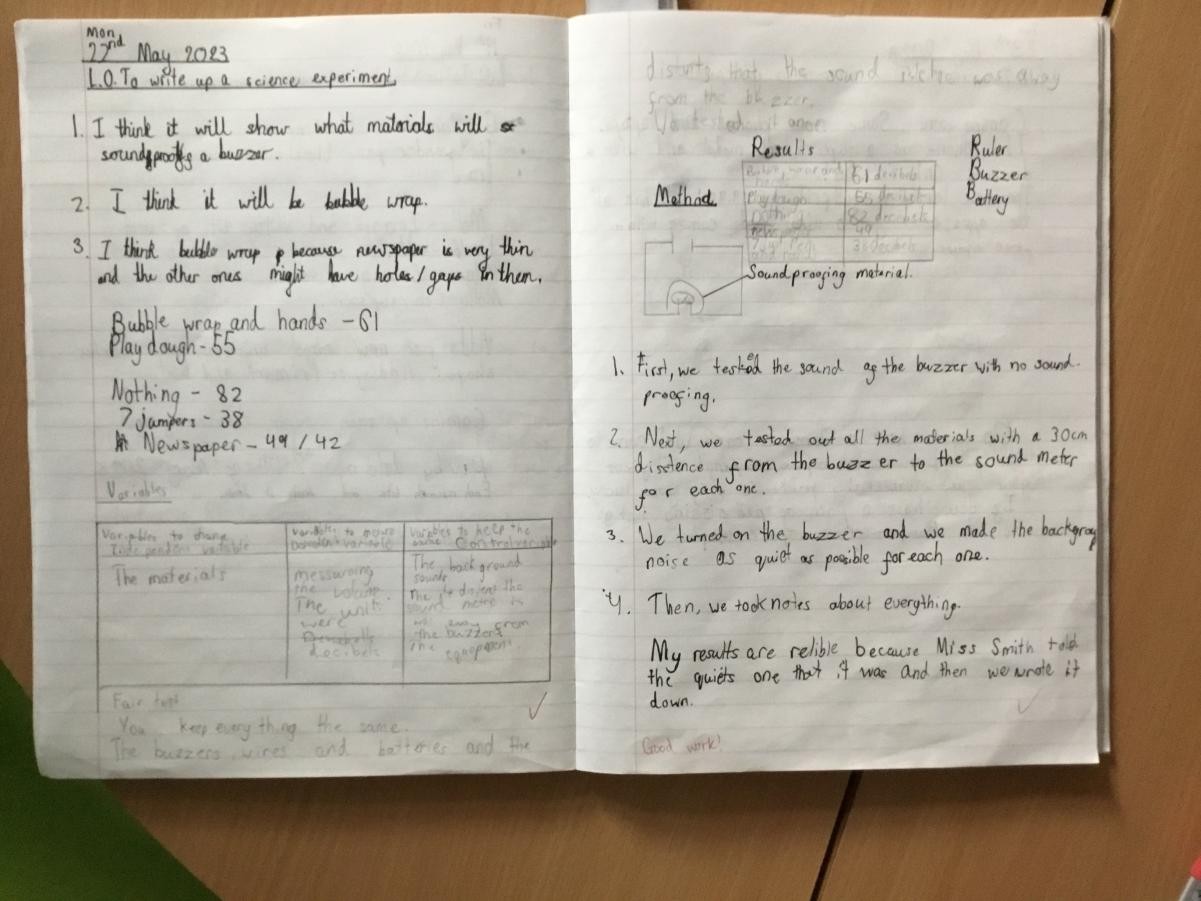 Mon
22nd May 2023
L.O. To write up a science experiment
1. I think it will show what materials will
soundproofs a buzzer.
2. I think it will be bubble wrap.
3. I think bubble wrap because newspaper is very thin
and the other ones might have holes/gaps in them.
Bubble wrap and hands - 61
Play dough - 55
Nothing - 82
7 jumpers - 38
Newspaper - 49 / 42
Variables
Variables to change
Independent variable
The materials
Variables to
Dependent variable
messuring
the volume.
The unit
were
decibels
Variables to keep the
same Control variable
The back ground
sounds
The distent the
sound metre is
away from
the buzzers
the equipment
Fair test
You keep everything the same.
The buzzers, wires and batteries and the
distents that the sound was away
from the buzzer.
We tested it
Results
Bubble wrap and
hands
61 decibels
Play dough
55 decibels
nothing
82 decibels
newspaper
49
38 decibels
Ruler
Buzzer
Battery
Method
Soundproofing material.
1. First, we tested the sound of the buzzer with no sound
proofing.
2. Next, we tested out all the materials with a 30cm
disstence from the buzzer to the sound meter
for each one.
3. We turned on the buzzer and we made the backgroy
noise as quiet as possible for each one.
4. Then, we took notes about everything.
My results are relible because Miss Smith told
the quiets one that it was and then we wrote it
down.
Good work!